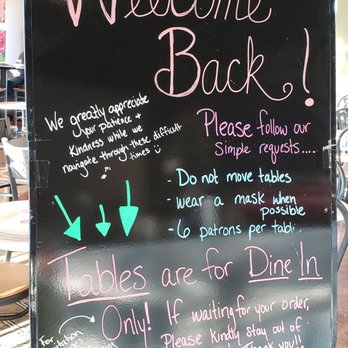 Welcome
Back!
We greatly appreciate
your patience +
Kindness while we
navigate through these difficult
times
Please follow our
simple requests....
- Do not move tables
- wear a mask when
possible
- 6 patrons per table.
Tables are for Dine In
Only! If waiting for your order,
Please kindly stay out of
For
Thank you!!